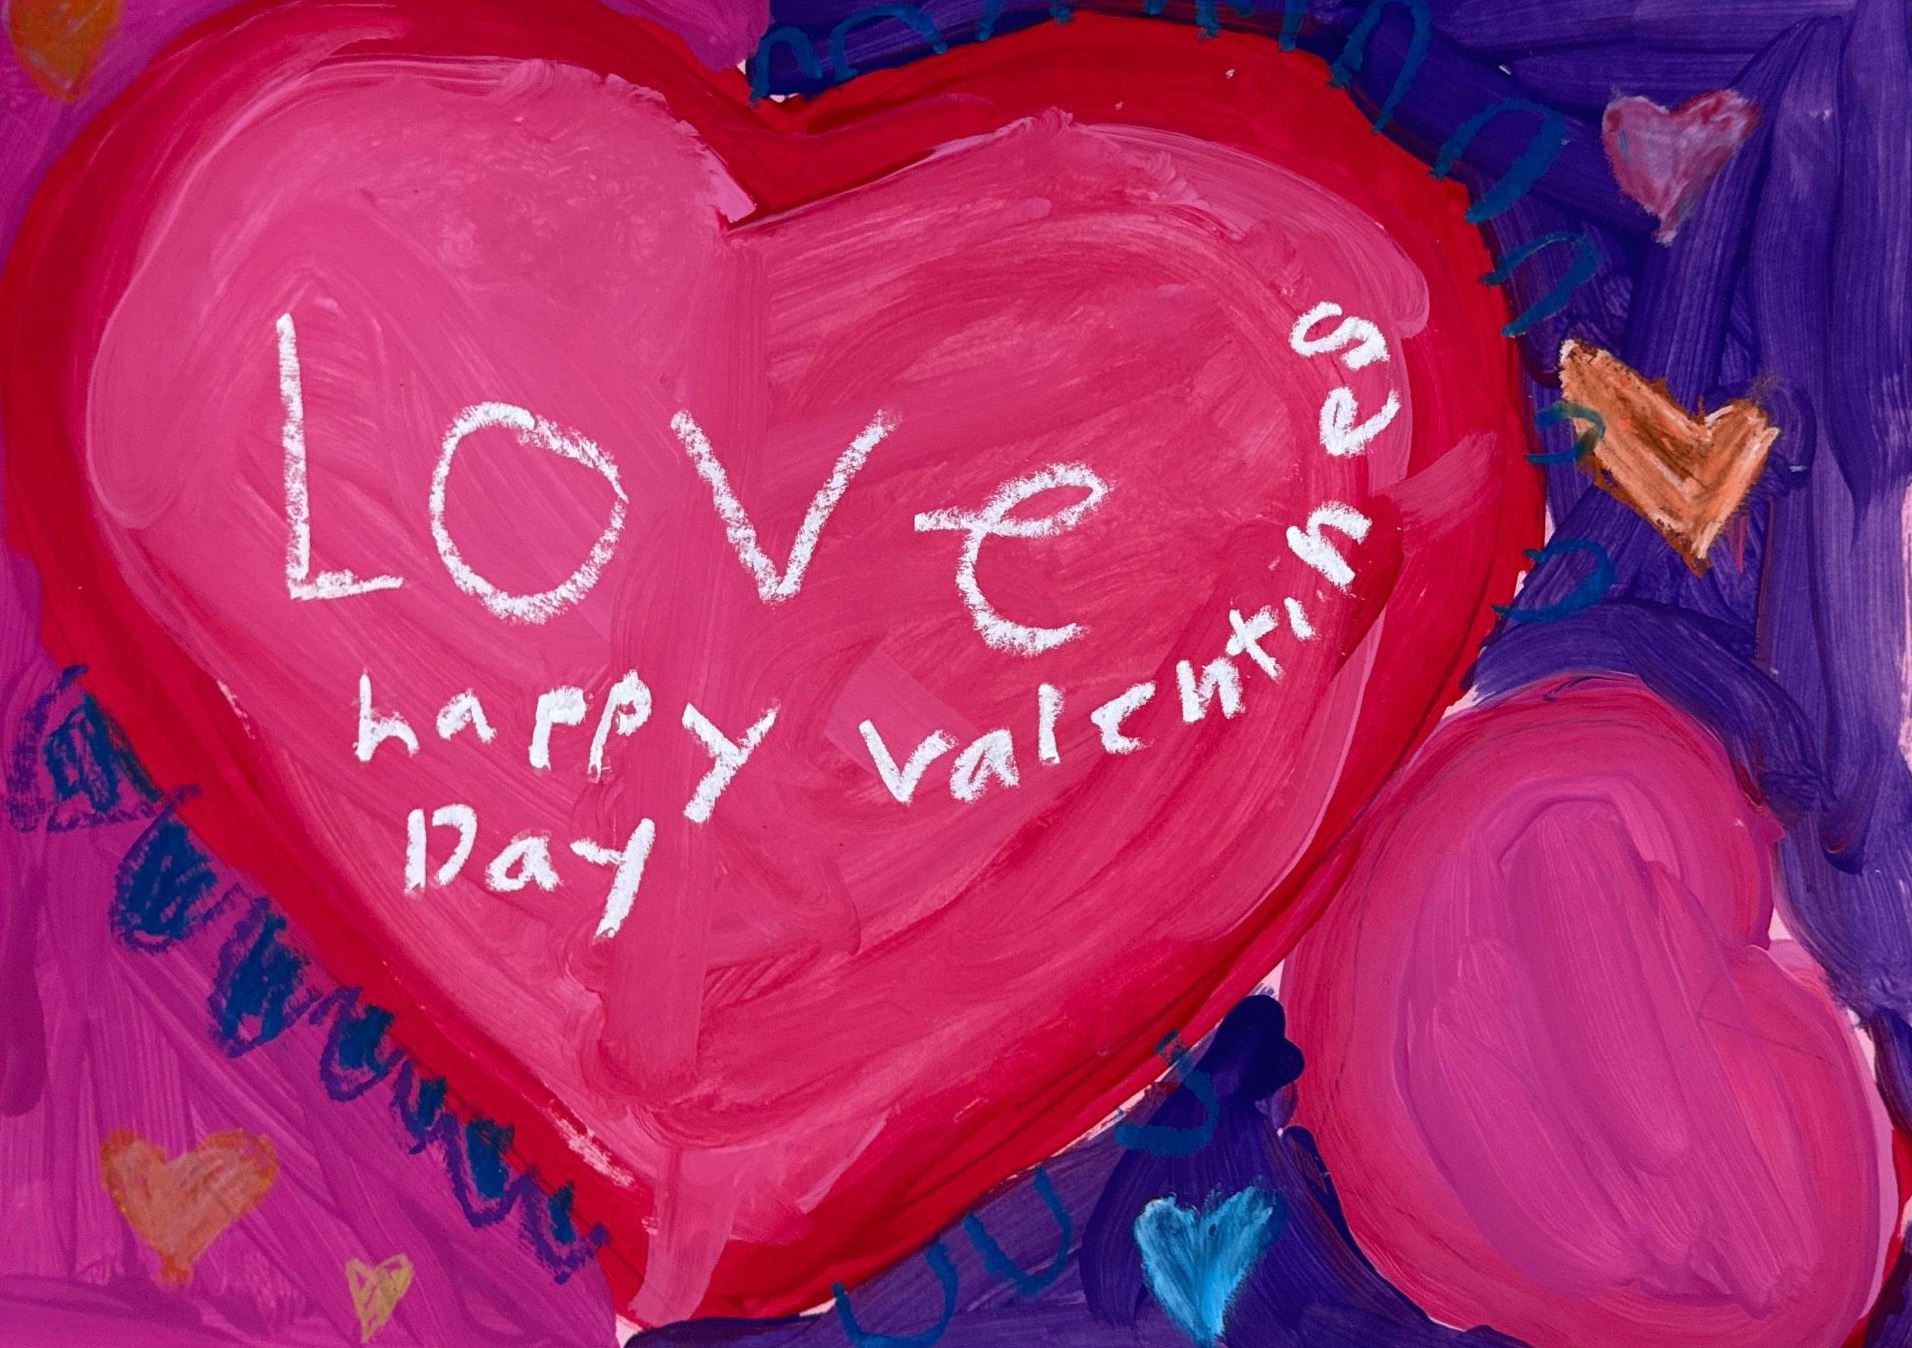 Love
happy Valentines
Day